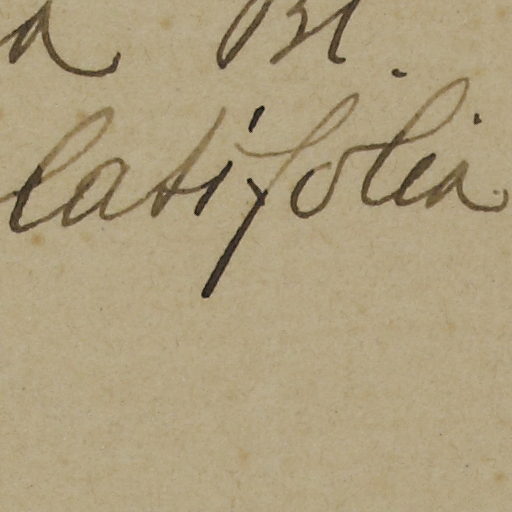 a Bl.
latifolia